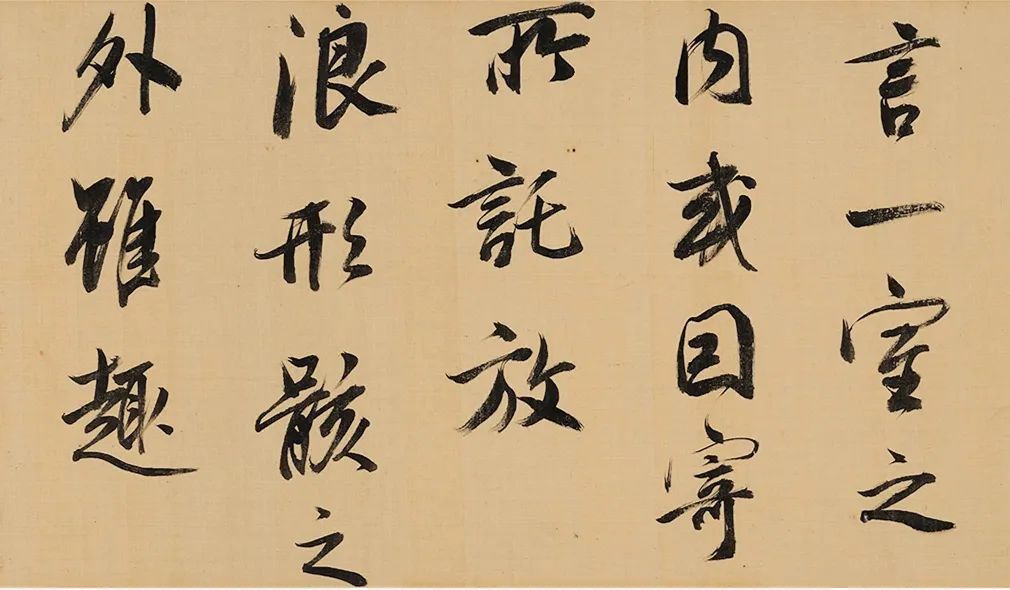 言一室之
内或因寄
所託放
浪形骸之
外雖趣